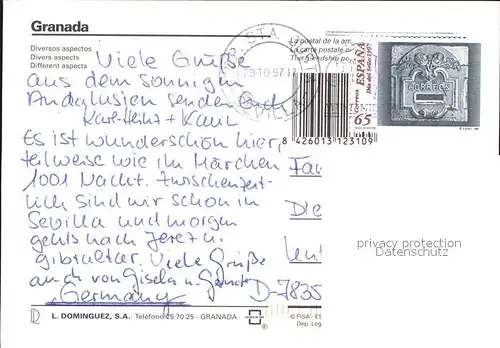 Granada
Diversos aspectos
Divers aspects
Different aspects
La postal de la am
La carte postale
The friendship po
29-10-97
SEVILLA
Correos ESPAÑA
Día del Sello 1997
65
CORREOS
8 426013 123109
Viele Grüße
aus dem sonnigen
Andalusien senden Euch
Karl-Heinz +
Es ist wunderschön hier,
teilweise wie im Märchen
1001 Nacht. Zwischenzeit-
lich sind wir schon in
Sevilla und morgen
gehts nach Jerez u.
Gibraltar. Viele Grüße
auch von Gisela u.
Germany
Fam
Die
D-7835
privacy protection
Datenschutz
L. DOMINGUEZ, S.A. Teléfono 25 70 25 - GRANADA
© FISA - ES
Dep. Leg